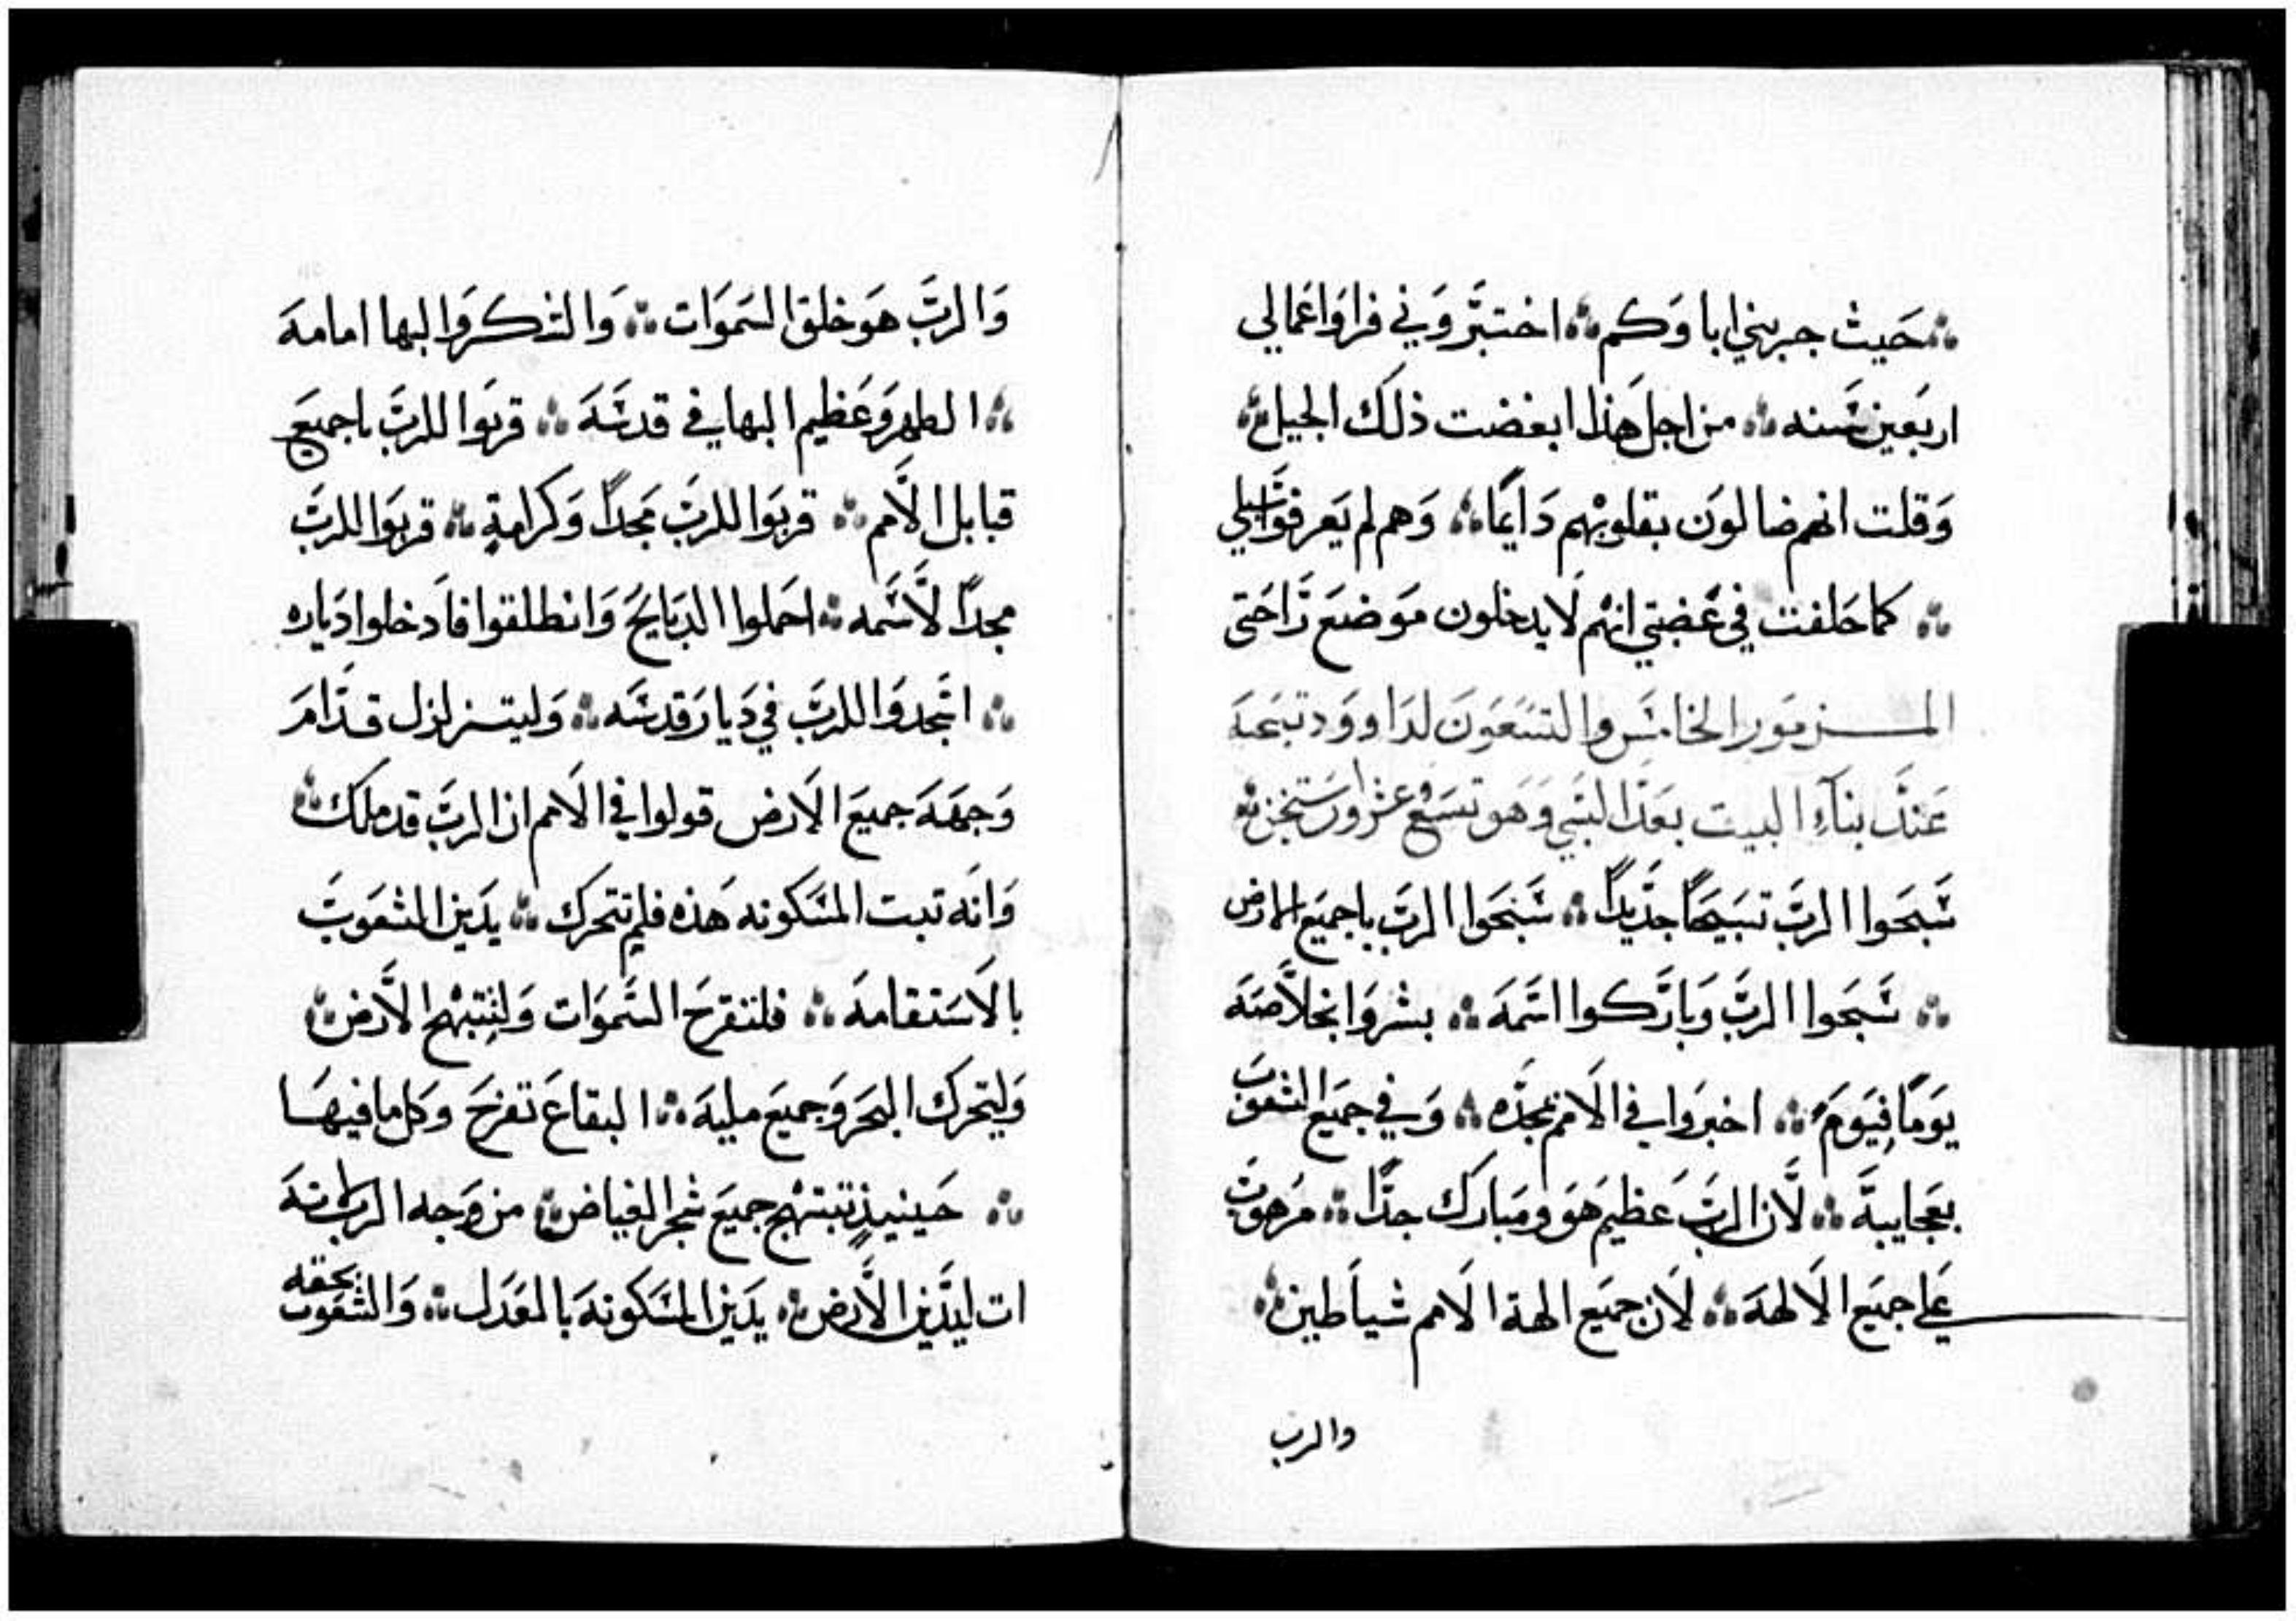 ؞ حَيث جربني اباوَكم ؞ اختبَروَني فراوَا اعَمالي
اربَعين سَنه ؞ من اجل هَذا ابغضت ذلَك الجيل ؞
وَقلت انهم ضالوَن بقلوبهم دَايمًا ؞ وَهم لم يَعرفوَا سبلي
؞ كما حَلفت في غَضبتي انهم لَا يدخلون موَضعَ رَاحَتي
المزموَر الخامسَ والتسَعَوَن لدَاووَد تبَحَهَ
عَندَ بناَء البيت بعَدَ السَبي وَهوَ تسَعَ عَشر اورسَتيخن ؞
سَبحَوا الربَ تسَبيَحًا جدَيدًا ؞ سَبحَوا الربَ يا جميَع الارض
؞ سَبحَوا الربَ وَبارَكوا اسَمهَ ؞ بشروَا بخلَاصَهَ
يوَمًا فيوَم ؞ اخبروَا في الَامم بمجدَه ؞ وَفي جميَع الشعَوَب
بعَجايبهَ ؞ لَان الربَ عَظيم هَوَ وَمبارَك جدًا ؞ مرهوَب
عَلي جميَع الَالهَهَ ؞ لَان جميَع الهة الَامم شياَطين ؞
والرب
وَالربَ هوَ خلق السَموَات ؞ وَالشكروَالبها امامهَ
؞ الطهر وَعَظيم البهاء في قدسَهَ ؞ قربَوا للربَ يا جميَع
قبايل الَامم ؞ قربَوَا للربَ مَجدًا وَكرامةٍ ؞ قربَوَا للربَ
مجدًا لَاسَمه ؞ احَملوا الدبَايحَ وَانطلقوا فاَدخلوا دَياره
؞ اسَجدوَا للربَ في دَيارَ قدسَه ؞ وَليتزلزل قدَامَ
وَجههَ جميَع الَارض قولوا في الَامم ان الربَ قد ملَك ؞
وَانهَ ثبت المسَكونه هَذه فلم تتحَرَك ؞ يدَين الشعَوبَ
بالَاسَتقامهَ ؞ فلتفرحَ السَموَات وَلتبتهج الَارَض ؞
وَليتحَرَك البحَر وَجميَع مليهَ ؞ البقاعَ تفرحَ وكل ما فيهَا
؞ حَينيذٍ تبتهج جميَع شجر الغياض ؞ من وَجه الربَ انهَ
ات ليدَين الَارض ؞ يدَين المسَكونهَ بالعَدَل ؞ وَالشعَوب بحقه